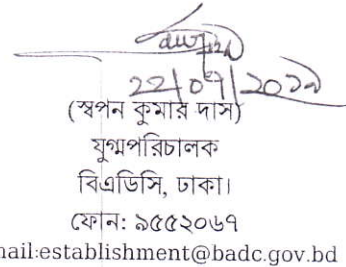 ২২/০৭/২০১৯
(স্বপন কুমার দাস)
যুগ্মপরিচালক
বিএডিসি, ঢাকা।
ফোন: ৯৫৫২০৬৭
mail:establishment@badc.gov.bd